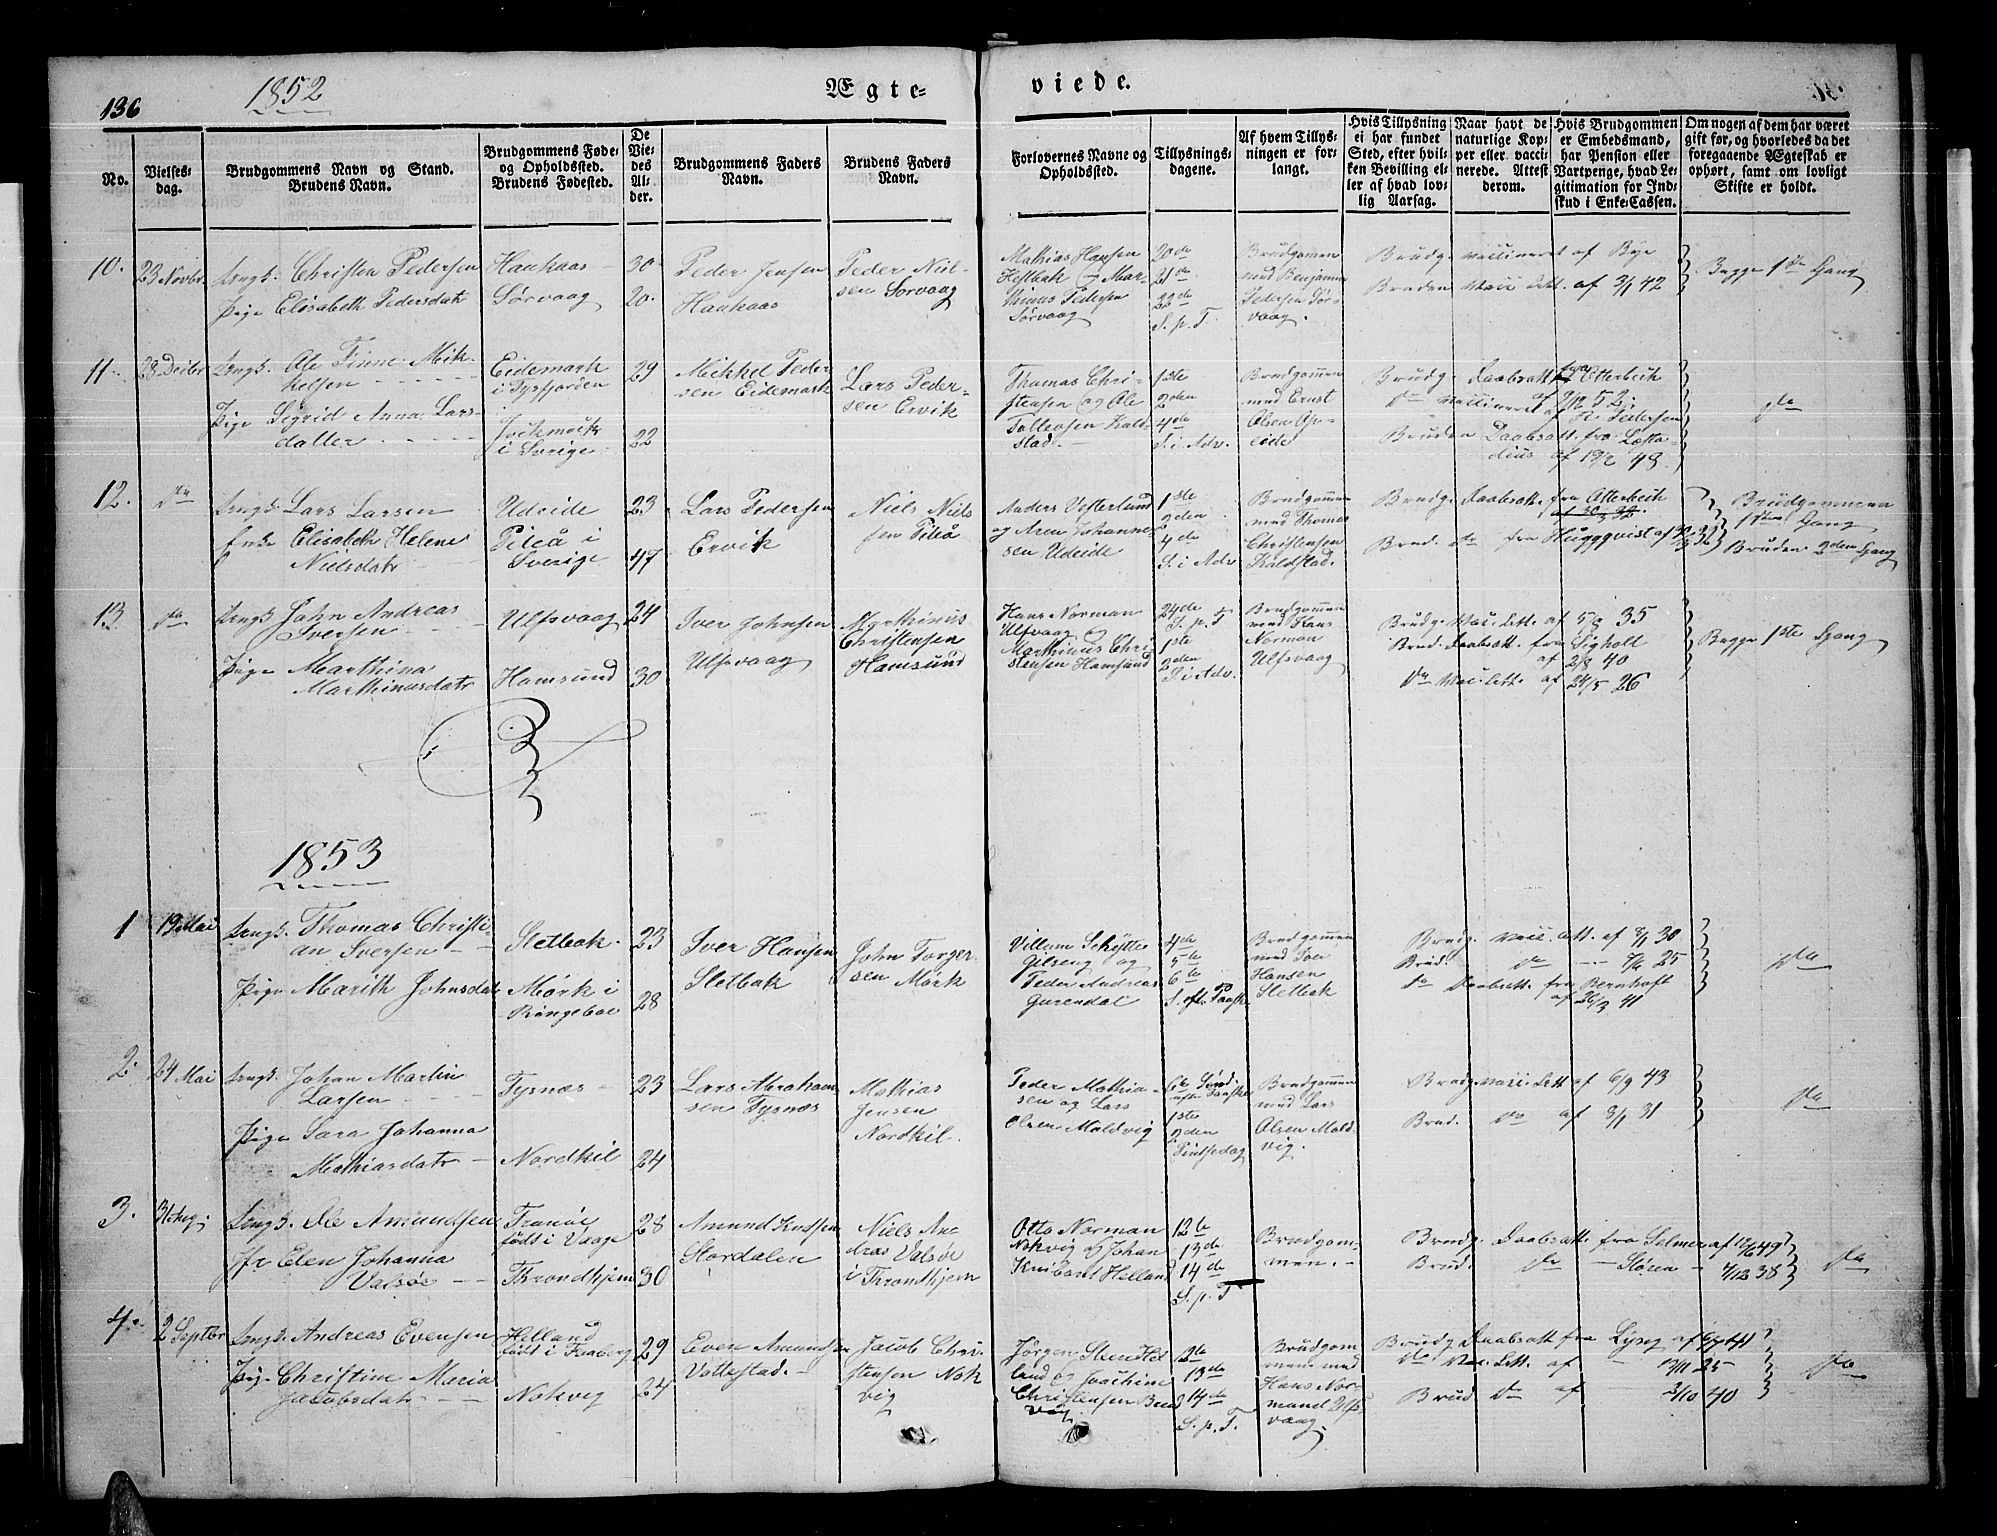 136
1852
Ægte-
viede.
No.
Vielses-
dag.
Brudgommens Navn og Stand.
Brudens Navn.
Brudgommens Føde-
og Opholdssted.
Brudens Fødested.
De
Vie-
des
Al-
der.
Brudgommens Faders
Navn.
Brudens Faders
Navn.
Forlovernes Navne og
Opholdsted.
Tillysnings-
dagene.
Af hvem Tillys-
ningen er for-
langt.
Hvis Tillysning
ei har fundet
Sted, efter hvil-
ken Bevilling el-
ler af hvad lov-
lig Aarsag.
Naar havt de
naturlige Kop-
per eller vacci-
nerede. Attest
derom.
Hvis Brudgommen
er Embedsmand,
har Pension eller
Vartpenge, hvad Le-
gitimation for Ind-
skud i Enke-Cassen.
Om nogen af dem har været
gift før, og hvorledes da det
foregaaende Ægteskab er
ophørt, samt om lovligt
Skifte er holdt.
10.
23 Novbr
Ungk. Christen Pedersen
Pige Elisabeth Pedersdatr
Haukaas
Sørvaag
30
20.
Peder Jensen
Haukaas
Peder Niel-
sen Sorvaag
Mathias Hansen
Kelbak og Mar-
thinus Pedersen
Sørvaag
20de
21de
22de
S. p. T
Brudgommen
med Benjamin
Pedersen Sør-
vaag.
Brudg. vaccineret af Bye
Bruden Vacc. Att. af 3/1 42
Begge 1ste Gang
11.
28 Decbr
Ungk. Ole Finne Mik-
kelsen
Pige Sigrid Anna Lars-
datter
Eidemark
i Tysfjorden
Jockmock
i Sverige
29
22
Mikkel Peder-
sen Eidemark
Lars Peder-
sen Ervik
Thomas Chri-
stensen og Ole
Tollevsen Kald-
stad.
1ste
2den
4de
S. i Adv.
Brudgommen
med Ernst
Olsen Op-
eide
Brudg. Daabsatt. fra Otterbeck
af 9/12 52.
do vaccineret af R. Pedersen
Bruden Daabsatt. fra Læsta-
dius af 19/2 48.
do
12.
do
Ungk. Lars Larsen
Enke Elisabeth Helene
Nielsdatr
Udeide
Piteå i
Sverige
23
47
Lars Pedersen
Ervik
Niels Niel-
sen Piteå
Anders Vesterlund
og Aren Johanne-
sen Udeide
1ste
2den
4de
S. i Adv
Brudgommen
med Thomas
Christensen
Kaldstad.
Brudg. Daabsatt. fra Otterbeck
Brud. do fra Huggqvist af 30/3 32
Brudgommen
1ste Gang
Bruden 2den Gang
13.
do
Ungk John Andreas
Iversen
Pige Marthina
Marthinusdatr
Ulfsvaag
Hamsund
24
30
Iver Johnsen
Ulfsvaag
Marthinus
Christensen
Hamsund
Hans Norman
Ulfsvaag og
Marthinus Chri-
stensen Hamsund
24de
S. p. T
1ste
2den
S. i Adv.
Brudgommen
med Hans
Norman
Ulfsvaag
Brudg. Vacc. Att. af 5/8 35
Brud. Daabsatt. fra Sigholt
af 2/8 40
do Vacc. Att. af 24/5 26
Begge 1ste Gang
1853
1
19 Mai
Ungk. Thomas Christi-
an Iversen
Pige Marith Johnsdatr
Sletbak.
Mørk i
Ringeboe
23
28
Iver Hansen
Sletbak
John Torger-
sen Mørk
Villum Schytte
Gilseng og
Peder Andreas
Gurendal
4de
5te
6te
S. eft. Paaske
Brudgommen
med Iver
Hansen
Sletbak
Brudg. Vacc. att. af 3/1 30
Brud. do 7/6 25
do Daabsatt. fra Bernhoft
af 26/3 41
do
2.
24 Mai
Ungk. Johan Martin
Larsen
Pige Sara Johanna
Mathiasdatr
Tysnæs
Nordkil
23
24
Lars Abraham-
sen Tysnæs
Mathias
Jensen
Nordkil.
Peder Mathia-
sen og Lars
Olsen Maldvig
6te Sønd.
efter Paaske
1ste
2den
Pintsedag
Brudgommen
med Lars
Olsen Mald-
vig.
Brudg. Vacc. Att af 6/9 43
Brud. do af 3/1 31
do
3.
31 Aug.
Ungk. Ole Amundsen
Jfr Elen Johanna
Valsøe
Tranøe
født i Vaage
Throndhjem
28
30
Amund Knudsen
Stordalen
Niels An-
dreas Valsøe
i Throndhjem
Otto Norman
Nokvig og Johan
Knibant Helland
12te
13de
14de
S. p. T
Brudgom-
men.
Brudg. Daabsatt. fra Selmer af 12/6 49
Brud. do Støren 7/12 38
do
4.
2 Septbr
Ungk. Andreas Evensen
Pige Christine Maria
Jacobsdatr
Helland
født i Faaberg
Nokvig
29
24
Even Amundsen
Vollestad.
Jacob Chri-
stensen Nok-
vig
Jørgen
og Joachim
Christensen
12te
13de
14de
S. p. T.
Brudgom-
men med
Hans Nor-
mand Ulfs-
vaag.
Brudg. Daabsatt fra Lyseg af 6/7 41
do Vac. Att. af 3/11 25
Brud do af 3/10 40
do